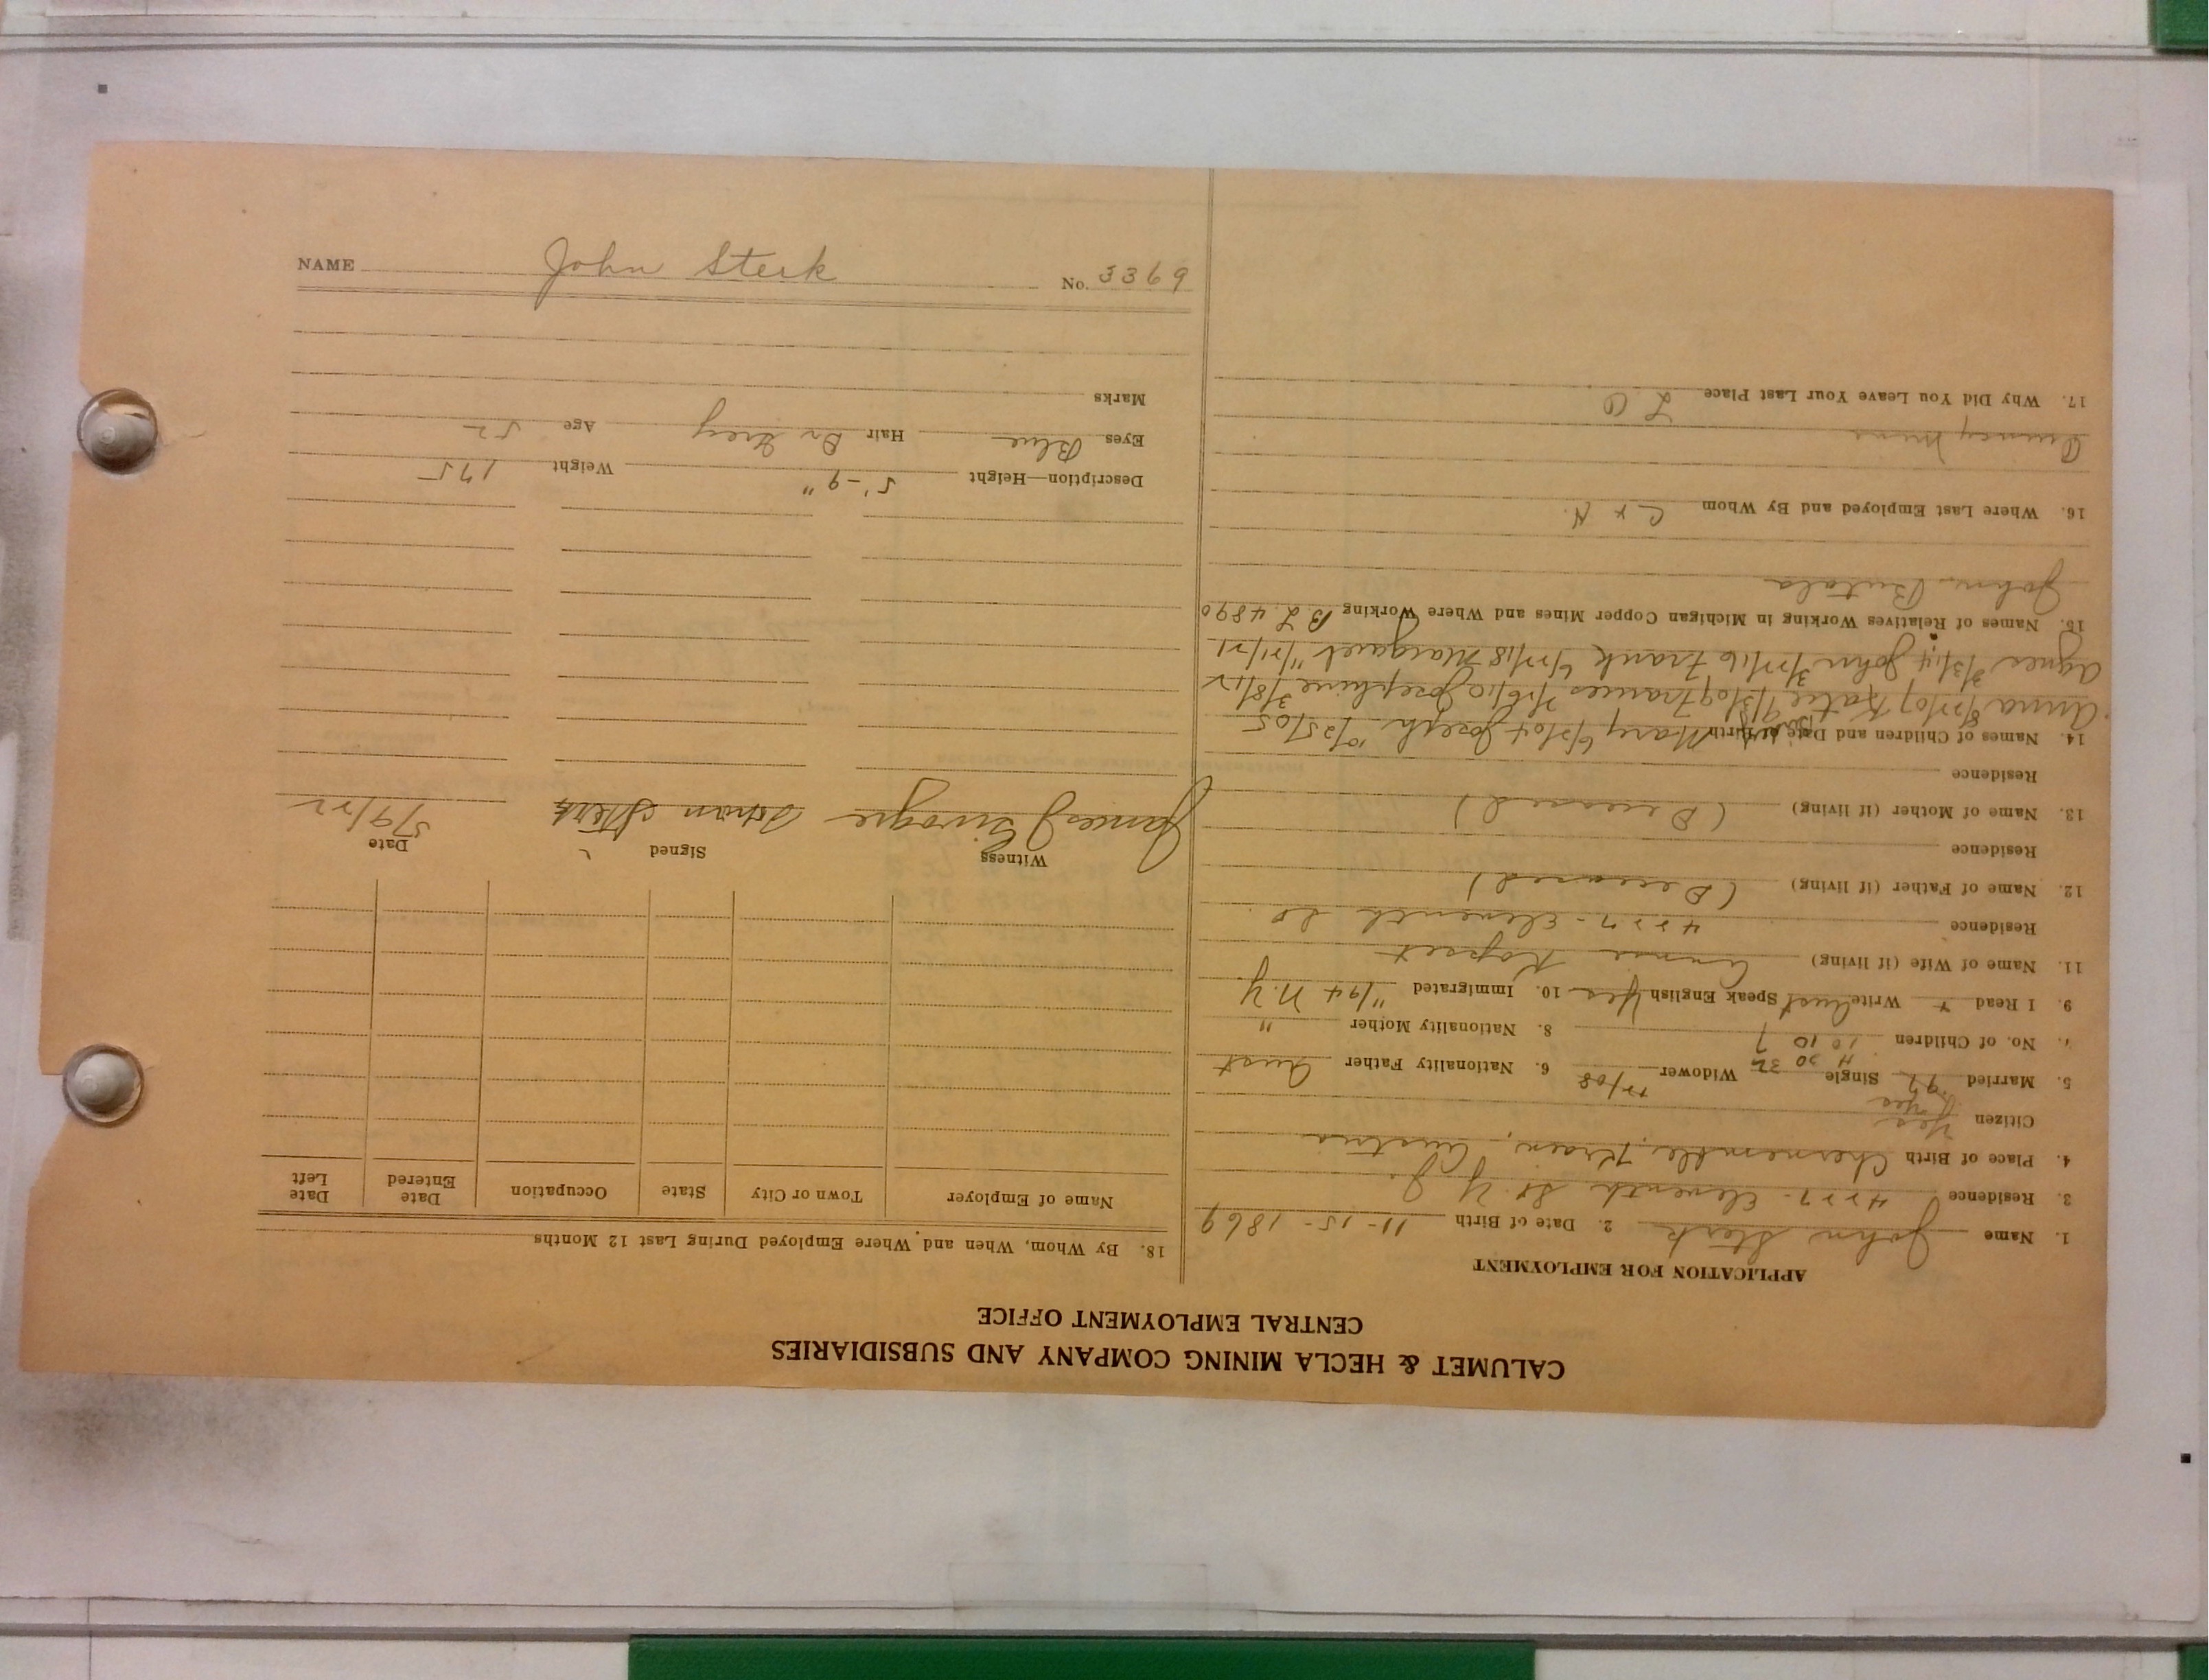 CALUMET & HECLA MINING COMPANY AND SUBSIDIARIES
CENTRAL EMPLOYMENT OFFICE
APPLICATION FOR EMPLOYMENT
1. Name John Sterk 2. Date of Birth 11-15-1869
3. Residence 4227 - Eleventh St. Y. J.
4. Place of Birth Chernemble, Krain, Austria
Citizen Yes
Yes
5. Married 97 Single Widower 6. Nationality Father Aust
H 30 32 12/08
7. No. of Children 10 10 7 8. Nationality Mother "
9. I Read + Write Aust Speak English Yes 10. Immigrated "/94 N.Y.
11. Name of Wife (if living) Annie
Residence 4227 - Eleventh St
12. Name of Father (if living) (Deceased)
Residence
13. Name of Mother (if living) (Deceased)
Residence
14. Names of Children and Date of Birth Mary 6/2/04 Joseph 10/25/05
Anna 8/27/07 Katie 9/3/09 Frances 7/16/10 Josephine 3/8/12
Agnes 3/3/14 John 3/27/16 Frank 6/27/18 Margaret "/21/21
15. Names of Relatives Working in Michigan Copper Mines and Where Working B. L. 4890
John Butala
16. Where Last Employed and By Whom C & H.
Quincy Mine
17. Why Did You Leave Your Last Place L O
18. By Whom, When and Where Employed During Last 12 Months
Name of Employer Town or City State Occupation Date Entered Date Left
Witness Signed Date
James J Sterk 5/9/22
Description—Height 5'-9" Weight 175
Eyes Blue Hair Br Grey Age 52
Marks
NAME John Sterk No. 3369